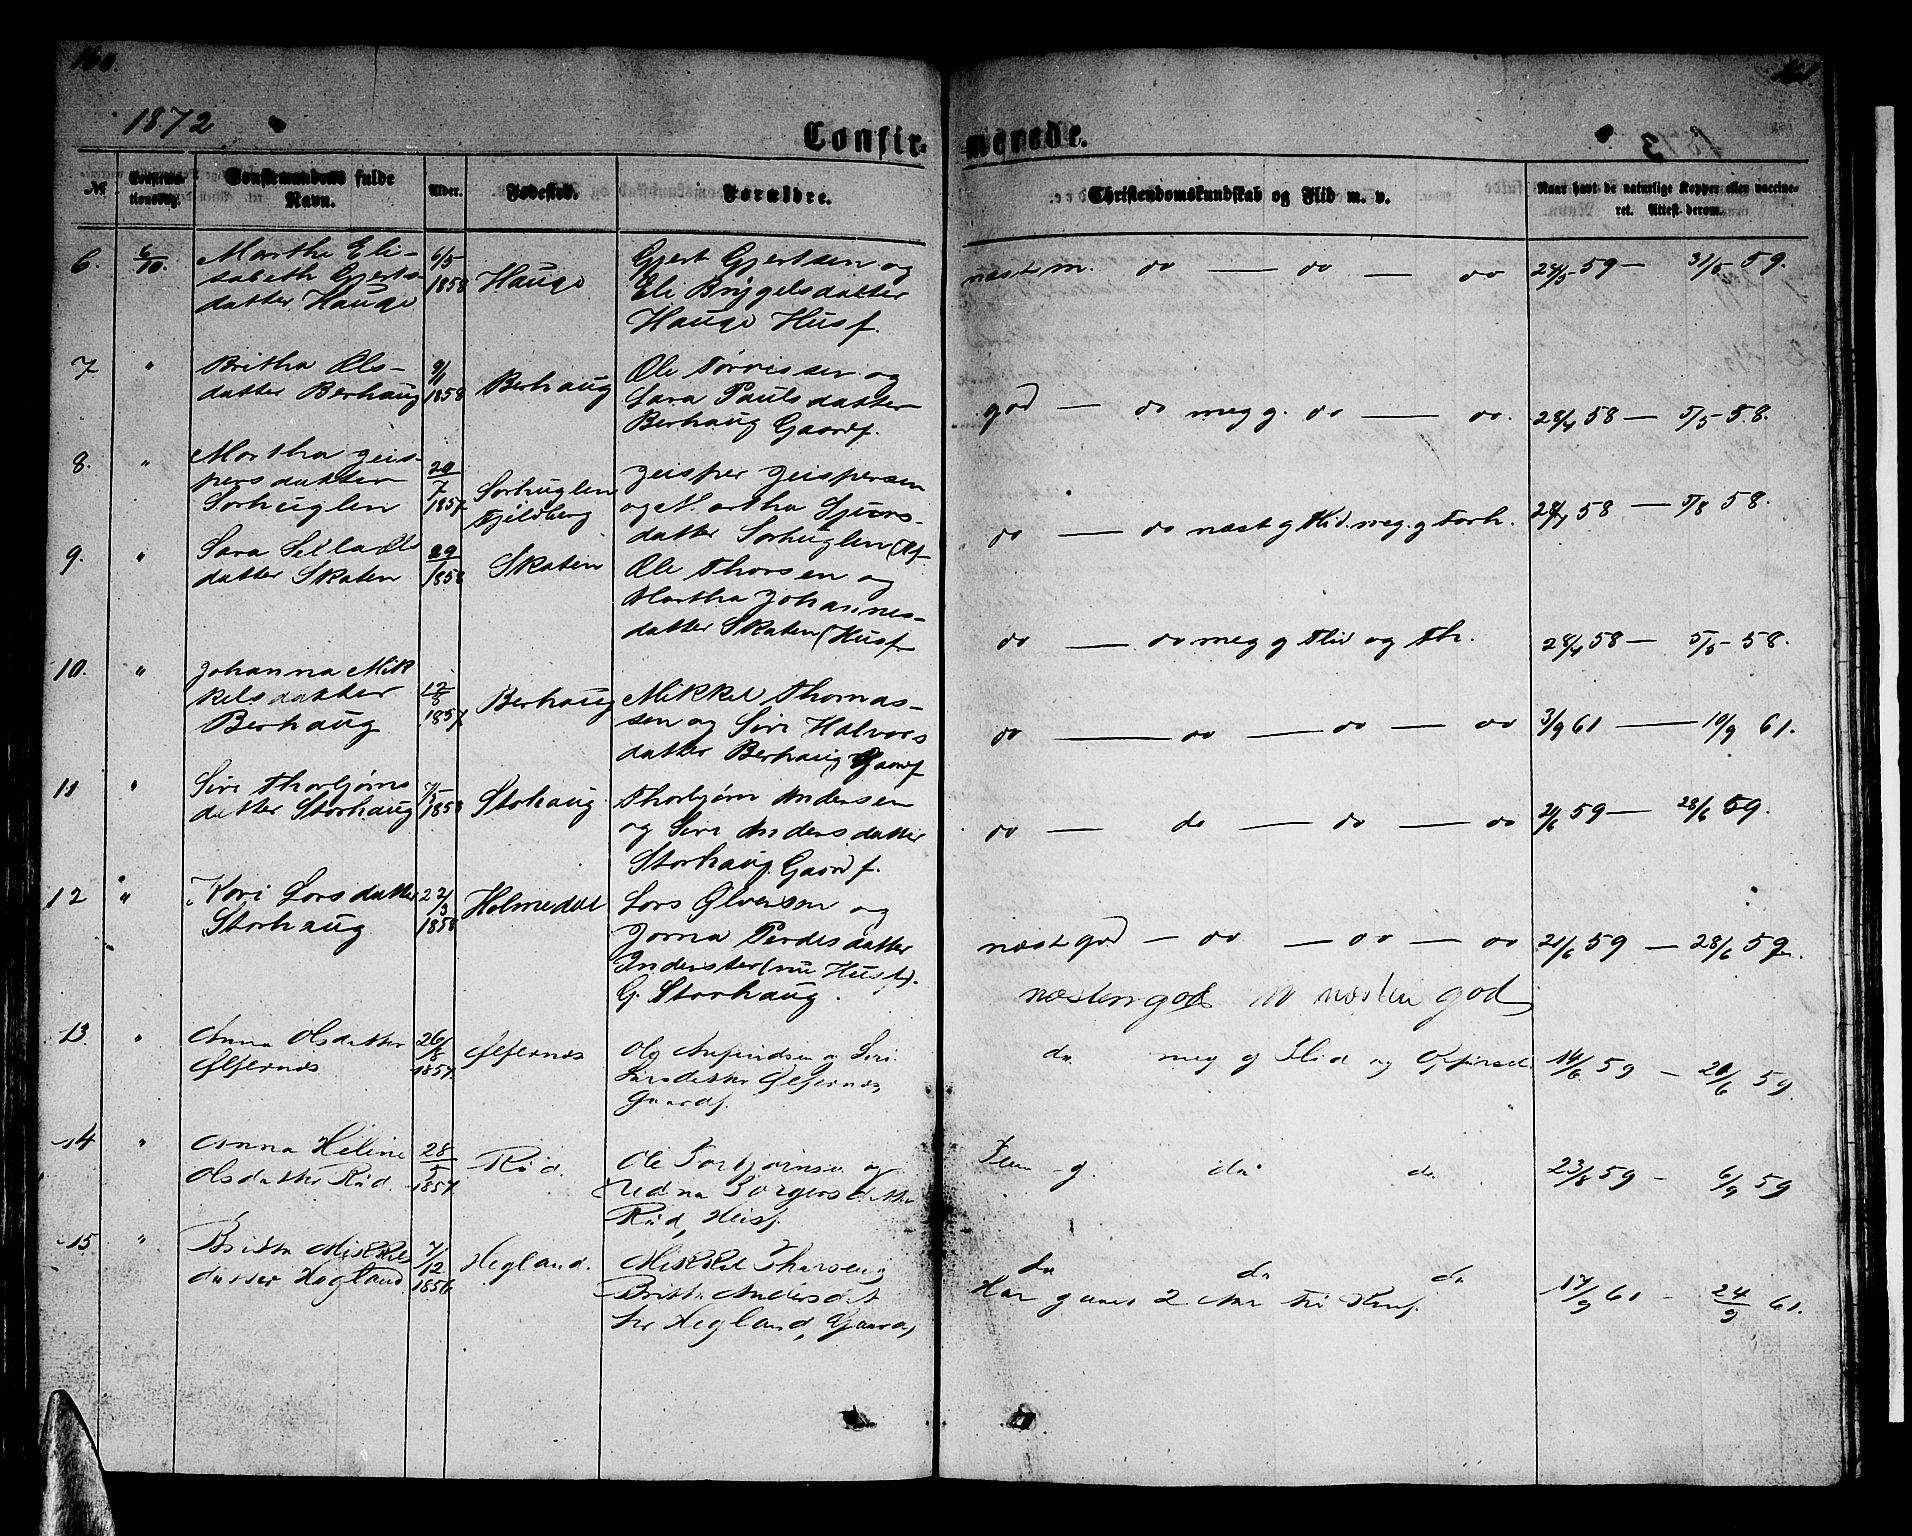 160.
161.
1872
Confirmerede.
No
Confirmationsdag.
Confirmandens fulde Navn.
Alder.
Fødested.
Forældre.
Christendomskundskab og Flid m. v.
Naar havt de naturlige Kopper eller vaccineret. Attest derom.
6. 6/10. Marthe Eli- 6/5 Hauge Gjert Gjertsen og næst m. do — do — do 24/5 59 — 31/5 59.
sabeth Gjerts- 1858 Eli Brygelsdatter
datter Hauge Hauge Husf.
7 " Britha Ols- 9/1 Berhaug Ole Tørrissen og
datter Berhaug 1858 Sara Paulsdatter god — do meg g. do — do. 28/4 58 — 5/5 58.
Berhaug Gaardf.
8. " Martha Jeis- 29/7 Sorhuglen Jeisper Jeispersen
persdatter 1857. Fjeldberg og Martha Sjurs- do — do næst g Flid. meg. g Forh. 28/4 58 — 5/8 58.
Sorhuglen datter Sorhuglen (Hf.
9. " Sara Sella Ols 1858 Skaten Ole Thorsen og
datter Skaten Martha Johannes-
datter Skaten (Husf do — do meg g Flid og Fh. 28/4 58 — 5/5 58.
10. " Johanna Mik 12/8 Berhaug Mikkel Thomas-
kelsdatter 1857. sen og Siri Halvors do — do — do — do 3/9 61 — 10/9 61.
Berhaug datter Berhaug Gaardf
11 " Siri Thorbjørns 7/5 Storhaug Thorbjørn Andersen
datter Storhaug 1858 og Siri Andersdatter do — do — do — do 21/6 59 — 28/6 59.
Storhaug Gaardf.
12 " Kari Larsdatter 22/3 Holmedal Lars Ølversen og
Storhaug 1858 Jorna Perdesdatter næst god — do — do — do 21/6 59 — 28/6 59
(nu Husf).
G. Storhaug. næsten god næsten god
13. " Anna Olsdatter 26/8 Ølfernæs Ole Anfindsen og Siri do meg g Flid og Opførsel. 14/6 59 — 20/6 59.
Ølfernæs 1857. Larsdatter Ølfernæs
Gaardf.
14 " Anna Heline 28/5 Rød. Ole Torbjørnsen og g. do do 23/8 59 — 6/9 59
Olsdatter Rød. 1857. datter
Rød, Husf.
15 " Britta Mikkels 7/12 Hegland. Mikkel Tharsen g do do do 17/9 61 — 24/9 61.
datter Hegland. 1856 Britta Andersdat Har gaaet 2 Aar til Konf.
ter Hegland, Gaard,